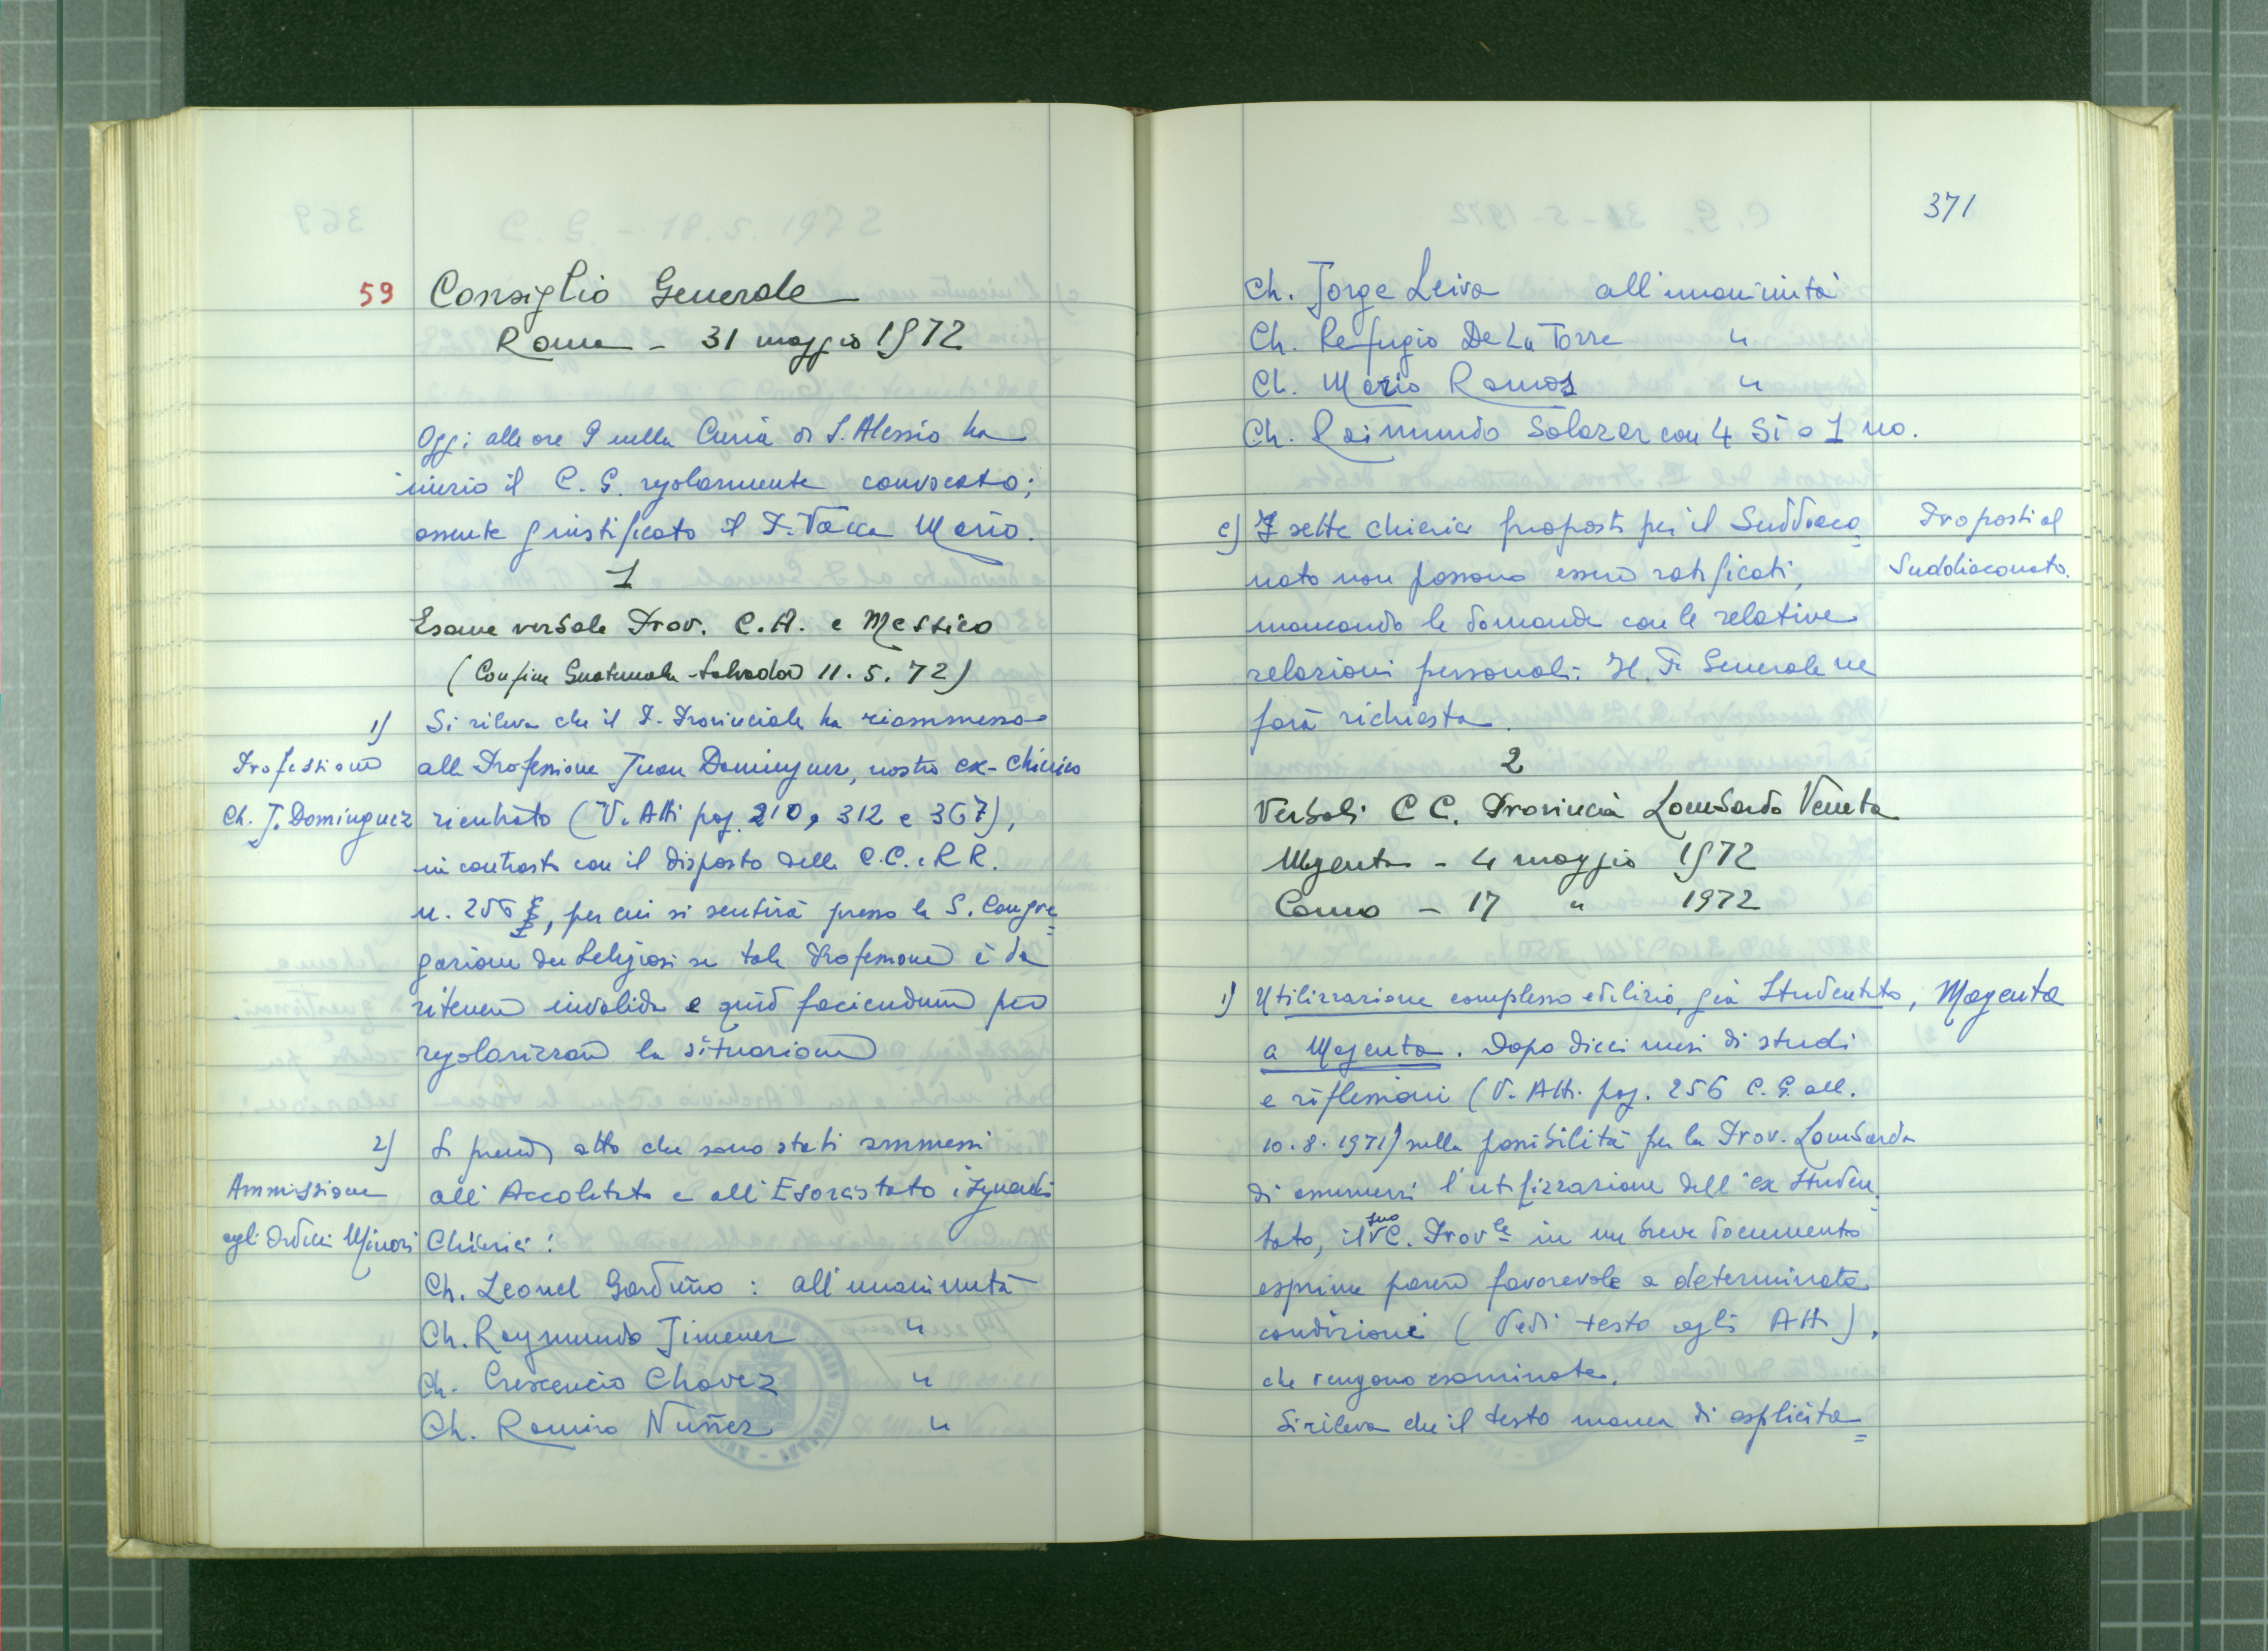 59 Consiglio Generale
Roma - 31 maggio 1972
Oggi alle ore 9 nella Curia di S. Alessio ha
inizio il C. G. regolarmente convocato;
assente giustificato il P. Vacca Mario.
1
Esame verbale Prov. C.A. e Messico
(Confine Guatemala-Salvador 11.5.72)
1)
Professione
Ch. J. Dominguez
Si rileva che il P. Provinciale ha riammesso
alla Professione Juan Dominguez, nostro ex-Chierico
rientrato (V. Atti pag. 210, 312 e 367),
in contrasto con il disposto delle C.C. e RR.
n. 256, per cui si sentirà presso la S. Congre=
gazione dei Religiosi se tale Professione è da
ritenere invalida e quid faciendum per
regolarizzare la situazione
2)
Ammissione
agli Ordini Minori
Si prende atto che sono stati ammessi
all'Accolitato e all'Esorcistato i seguenti
Chierici:
Ch. Leonel Garduño : all'unanimità
Ch. Raymundo Jimenez "
Ch. Crescencio Chavez "
Ch. Ramiro Nuñez "
371
Ch. Jorge Leiva all'unanimità
Ch. Refugio De La Torre "
Ch. Mario Ramos "
Ch. Raimundo Salazar con 4 Si e 1 no.
c) I sette chierici proposti per il Suddiaco=
nato non possono essere ratificati,
mancando le domande con le relative
relazioni personali. Il P. Generale ne
farà richiesta.
Proposti al
Suddiaconato.
2
Verbali C C. Provincia Lombardo Veneta
Magenta - 4 maggio 1972
Como - 17 " 1972
1) Utilizzazione complesso edilizio, già Studentato,
Magenta
a Magenta. Dopo dieci mesi di studi
e riflessioni (V. Atti pag. 256 C. G. all.
10.8.1971) sulla possibilità per la Prov. Lombarda
di assumersi l'utilizzazione dell'ex Studen=
tato, il suo C. Prov.le in un breve documento
esprime parere favorevole a determinate
condizioni (Vedi testo agli Atti),
che vengono esaminate.
Si rileva che il testo manca di esplicita=